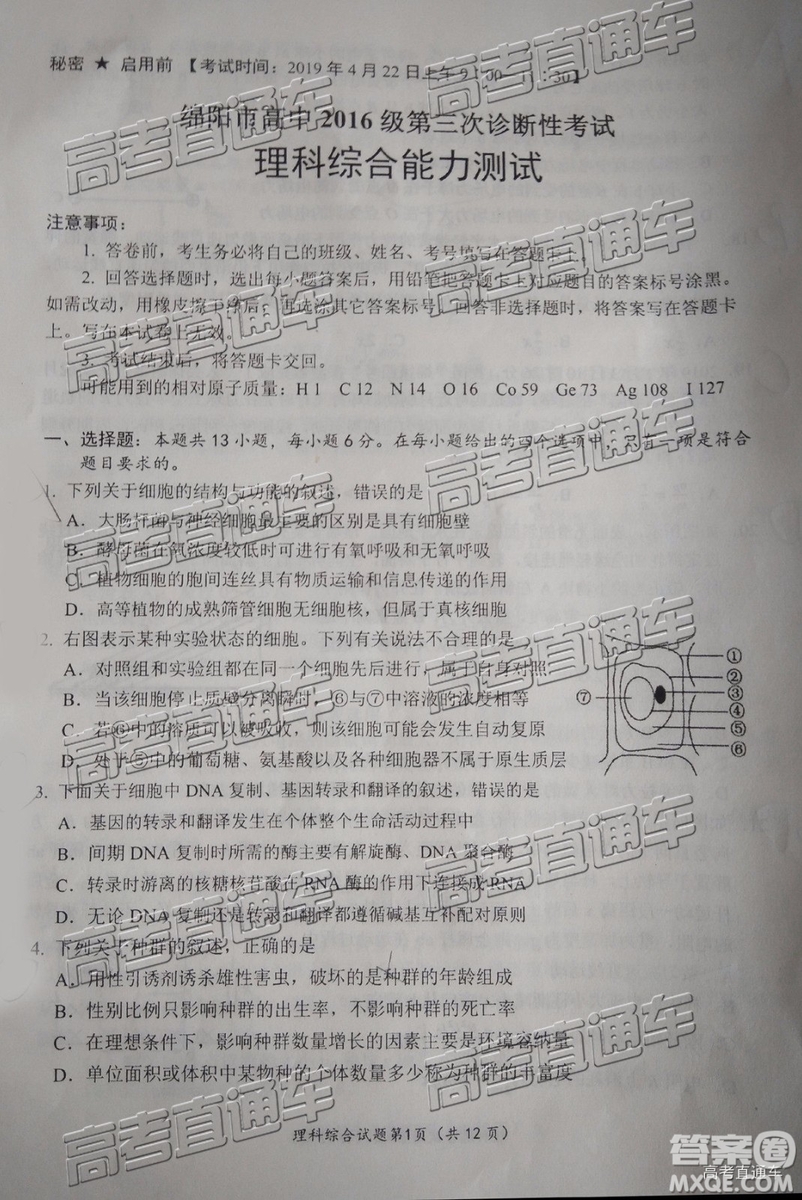 秘密 ★ 启用前 【考试时间：2019 年 4 月 22 日上午 9：00 — 11：30】
绵阳市高中 2016 级第三次诊断性考试
理科综合能力测试
注意事项：
1. 答卷前，考生务必将自己的班级、姓名、考号填写在答题卡上。
2. 回答选择题时，选出每小题答案后，用铅笔把答题卡上对应题目的答案标号涂黑。
如需改动，用橡皮擦干净后，再选涂其它答案标号。回答非选择题时，将答案写在答题卡
上。写在本试卷上无效。
3. 考试结束后，将答题卡交回。
可能用到的相对原子质量：H 1 C 12 N 14 O 16 Co 59 Ge 73 Ag 108 I 127
一、选择题：本题共 13 小题，每小题 6 分。在每小题给出的四个选项中，只有一项是符合
题目要求的。
1. 下列关于细胞的结构与功能的叙述，错误的是
A．大肠杆菌与神经细胞最主要的区别是具有细胞壁
B．酵母菌在氧浓度较低时可进行有氧呼吸和无氧呼吸
C．植物细胞的胞间连丝具有物质运输和信息传递的作用
D．高等植物的成熟筛管细胞无细胞核，但属于真核细胞
2. 右图表示某种实验状态的细胞。下列有关说法不合理的是
A．对照组和实验组都在同一细胞先后进行，属于自身对照
B．当该细胞停止质壁分离瞬时，⑥与⑦中溶液的浓度相等
C．若⑥中的溶质可以被吸收，则该细胞可能会发生自动复原
D．处于⑤中的葡萄糖、氨基酸以及各种细胞器不属于原生质层
①
②
③
④
⑤
⑥
⑦
3. 下面关于细胞中 DNA 复制、基因转录和翻译的叙述，错误的是
A．基因的转录和翻译发生在个体整个生命活动过程中
B．间期 DNA 复制时所需的酶主要有解旋酶、DNA 聚合酶
C．转录时游离的核糖核苷酸在 RNA 酶的作用下连接成 RNA
D．无论 DNA 复制还是转录和翻译都遵循碱基互补配对原则
4. 下列关于种群的叙述，正确的是
A．用性引诱剂诱杀雄性害虫，破坏的是种群的年龄组成
B．性别比例只影响种群的出生率，不影响种群的死亡率
C．在理想条件下，影响种群数量增长的因素主要是环境容纳量
D．单位面积或体积中某物种的个体数量多少称为种群的丰富度
理科综合试题第1页（共 12 页）
高考直通车
答案圈
高考直通车
MXQE.COM